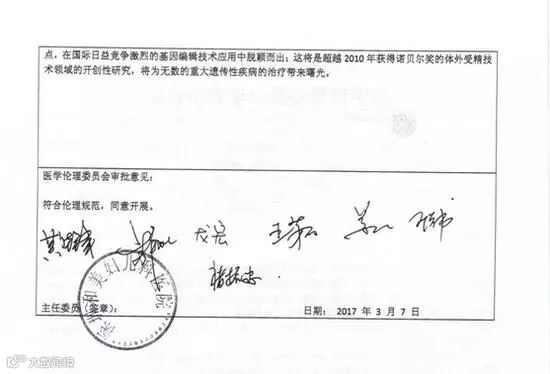 点，在国际日益竞争激烈的基因编辑技术应用中脱颖而出；这将是超越 2010 年获得诺贝尔奖的体外受精技
术领域的开创性研究，将为无数的重大遗传性疾病的治疗带来曙光。
医学伦理委员会审批意见：
符合伦理规范，同意开展。
深圳和美妇儿科医院
主任委员（签章）：
日期： 2017 年 3 月 7 日
大数跨境